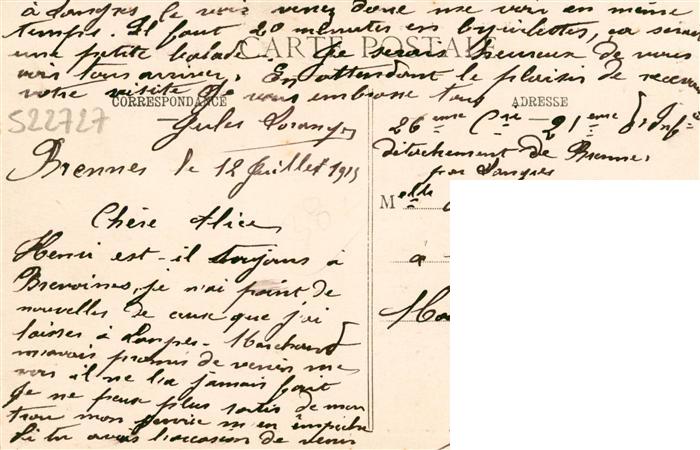 à Langres le voir venez donc me voir en même
temps. Il faut 20 minutes en bycilettes, ça serait
une petite balade. Je serais heureux de vous
voir tous arriver. En attendant le plaisir de recevoir
votre visite je vous embrasse tous
CARTE POSTALE
CORRESPONDANCE
ADRESSE
522727
Jules
26eme Cie 21eme d'Infie
détachement de Brennes
par Langres
Brennes le 12 Juillet 1915
Chère Alice
Henri est-il toujours à
Brevoines, je n'ai point de
nouvelles de ceux que j'ai
laissés à Langres. Marchand
m'avais promis de venir me
voir il ne l'a jamais fait
Je ne peux plus sortir de mon
trou mon service m'en empêche
Si tu avais l'occasion de venir
Melle
à